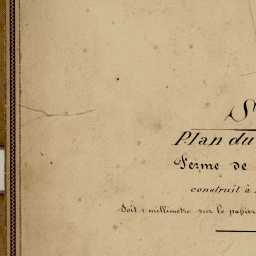 Plan du
Ferme de
construit à
Soit 1 millimètre sur le papier